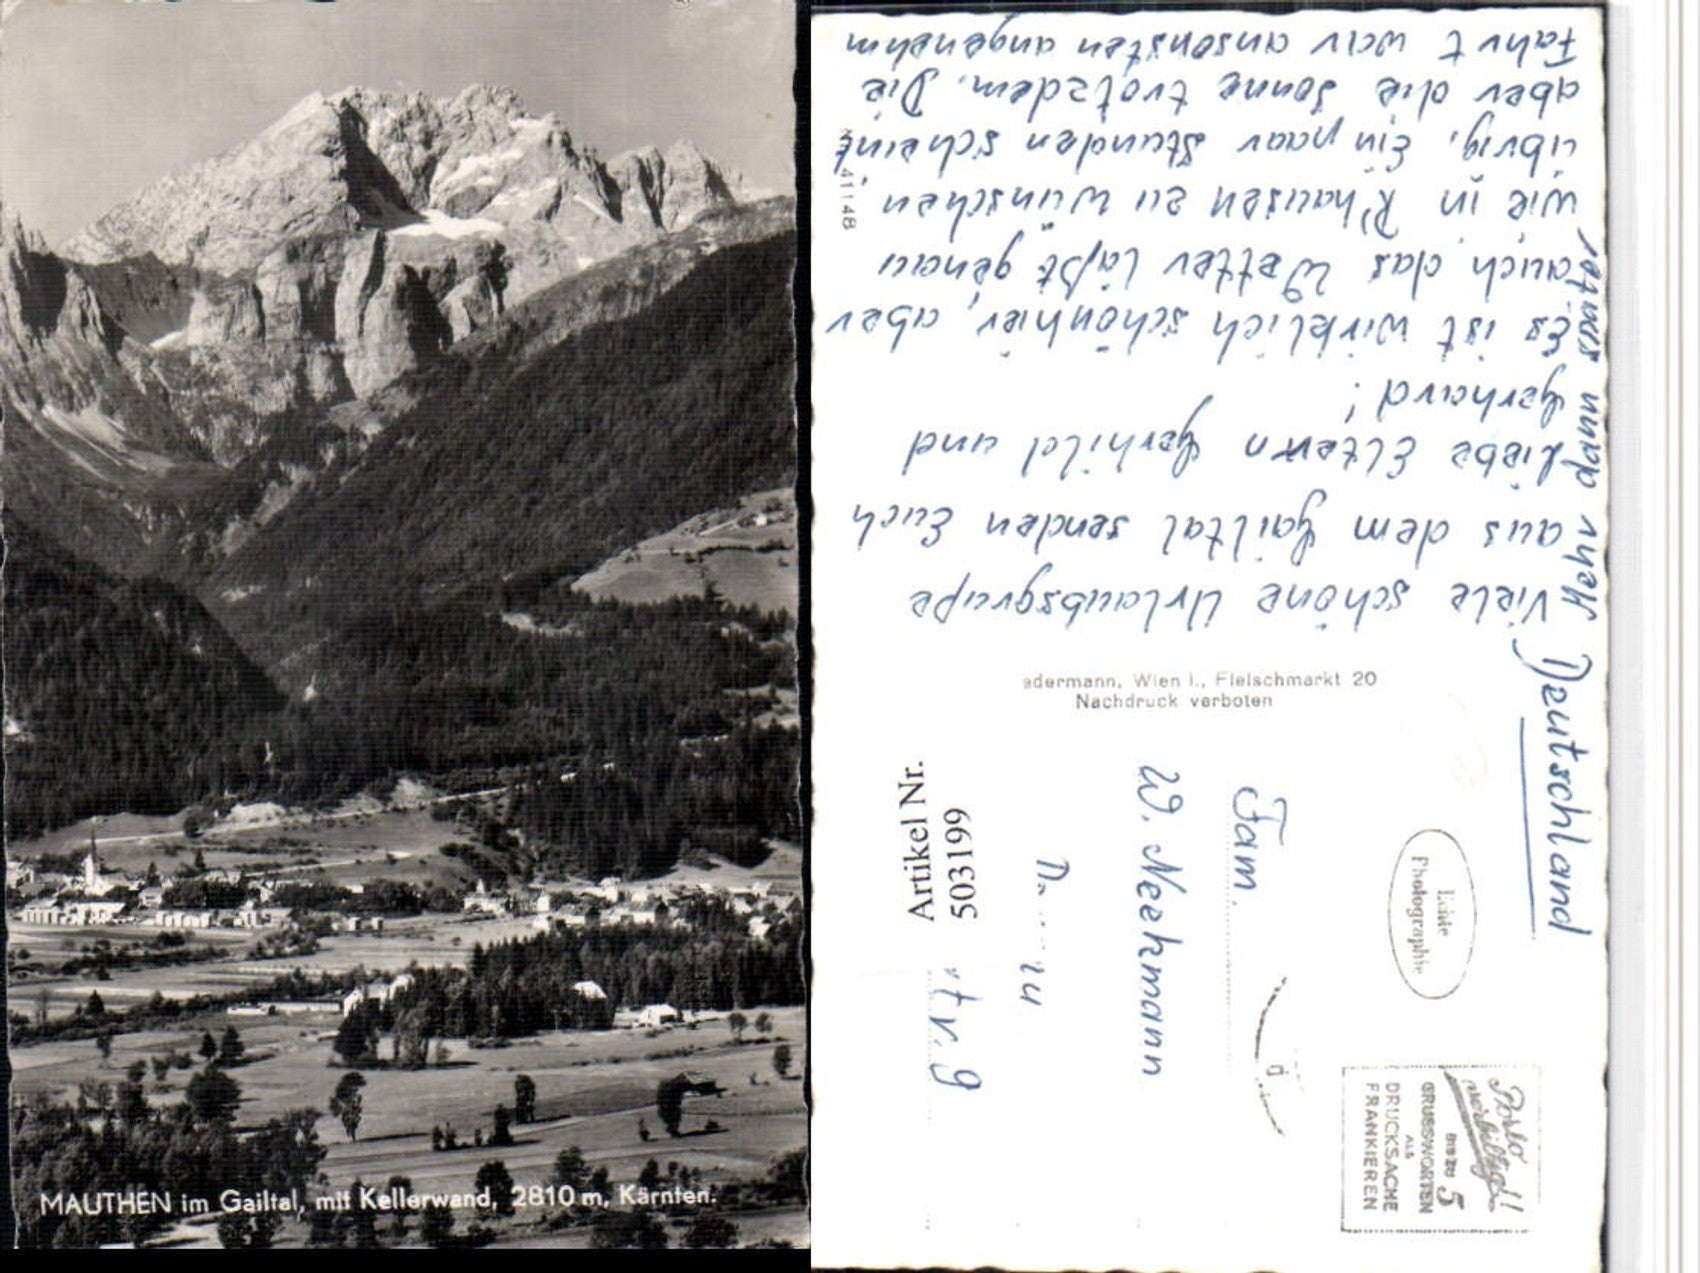 MAUTHEN im Gailtal, mit Kellerwand, 2810 m, Kärnten.
Viele schöne Urlaubsgrüße
aus dem Gailtal senden Euch
Liebe Eltern Gerhild und
Gerhard!
Es ist wirklich schön hier, aber
auch das Wetter läßt genau
wie in R'hausen zu wünschen
übrig. Ein paar Stunden scheint
aber die Sonne trotzdem. Die
Fahrt war ansonsten angenehm
Mehr dann später
41148
edermann, Wien I., Fleischmarkt 20
Nachdruck verboten
Deutschland
Echte
Photographie
Porto
verbilligt!
BIS ZU 5
GRUSSWORTEN
ALS
DRUCKSACHE
FRANKIEREN
Fam.
W. Neekmann
str. 9
Artikel Nr.
503199